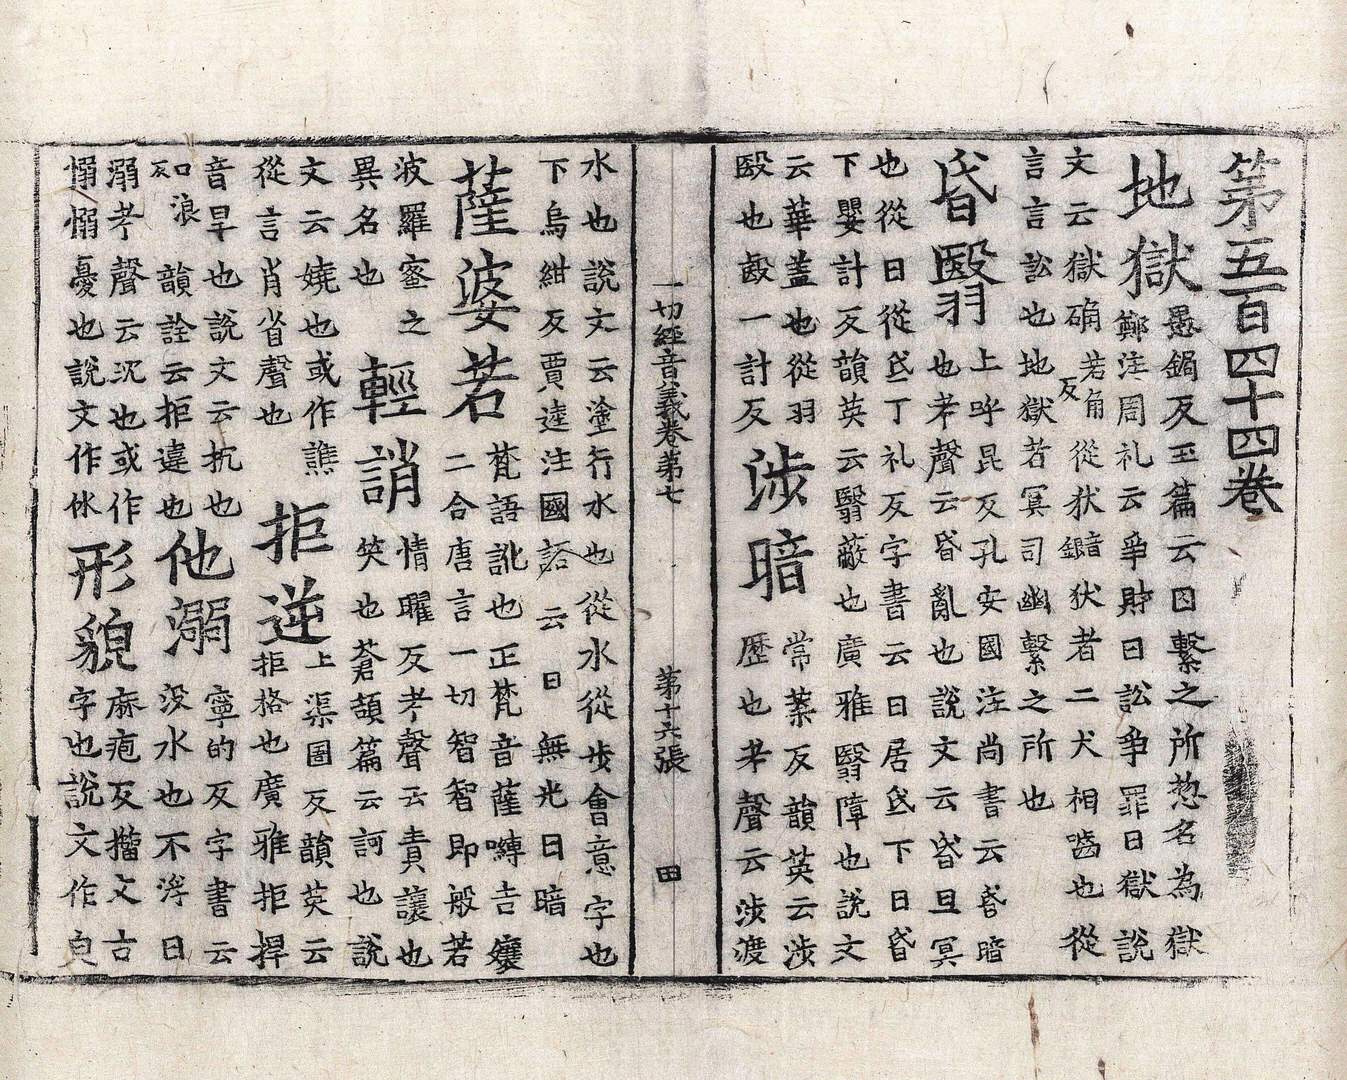 第五百四十四卷
地獄
愚錭反玉篇云囚繫之所惣名為獄
鄭注周礼云爭財曰訟爭罪曰獄說
文云獄确若角反從㹜㹜者二犬相嚙也從
言言訟也地獄若冥司幽繫之所也
昏翳
上呼昆反孔安國注尚書云昏暗
也考聲云昏亂也說文云昏旦冥
也從日從氐丁礼反字書云日居氐下曰昏
下嬰計反韻英云翳蔽也廣雅翳障也說文
云華蓋也從羽
殹也殹一計反
涉暗
常葉反韻英云涉
歷也考聲云涉渡
一切經音義卷第七
第十六張
田
水也說文云塗行水也從水從步會意字也
下烏紺反賈逵注國語云日無光曰暗
薩婆若
梵語訛也正梵音薩嚩吉孃
二合唐言一切智智即般若
波羅蜜之
異名也
輕誚
情曜反考聲云責讓也
笑也蒼頡篇云訶也說
文云嬈也或作譙
從言肖省聲也
拒逆
上渠圄反韻英云
拒格也廣雅拒捍
音旱也說文云抗也
口浪反韻詮云拒違也
他溺
寧的反字書云
沒水也不浮曰
溺考聲云沉也或作
㦬㦬憂也說文作㲻
形貌
麻疱反籀文古
字也說文作皃